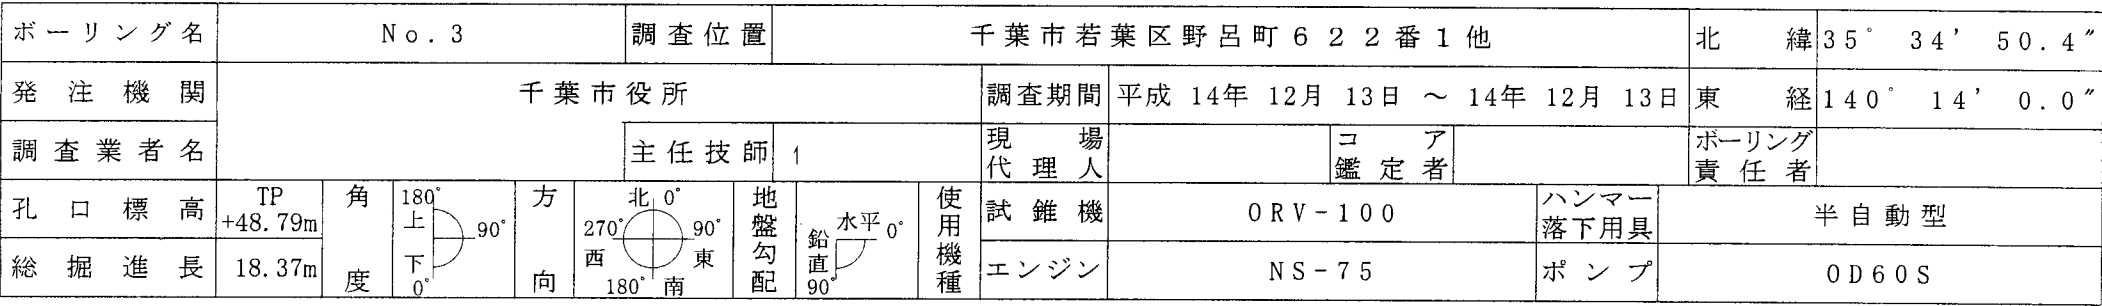 ボーリング名 No.3 調査位置 千葉市若葉区野呂町622番1他 北緯 35° 34' 50.4"
発注機関 千葉市役所 調査期間 平成 14年 12月 13日 ～ 14年 12月 13日 東経 140° 14' 0.0"
調査業者名 主任技師 現場代理人 コア鑑定者 ボーリング責任者
孔口標高 TP +48.79m 角度 180° 上 90° 下 0° 方向 北 0° 270° 90° 西 東 180° 南 地盤勾配 水平 0° 鉛直 90° 使用機種 試錐機 ORV-100 ハンマー落下用具 半自動型
総掘進長 18.37m エンジン NS-75 ポンプ OD60S